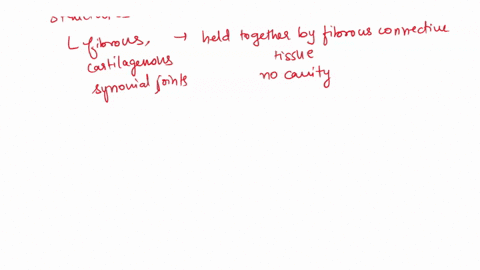 L fibrous, → held together by fibrous connective
cartilagenous tissue
synovial joints no cavity